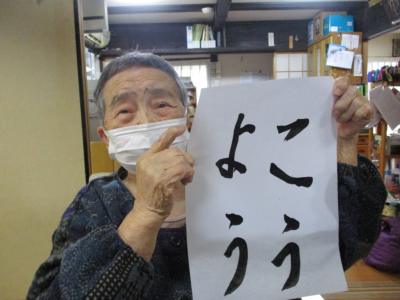 こう
よう